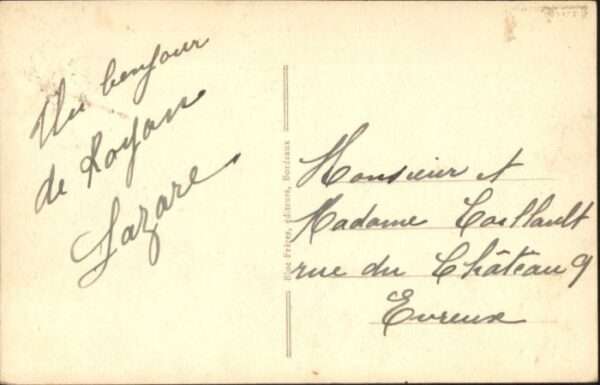 Un bonjour
de Royan
Lazare
Bloc Frères, éditeurs, Bordeaux
Monsieur et
Madame Coillault
rue du Château 9
Evreux